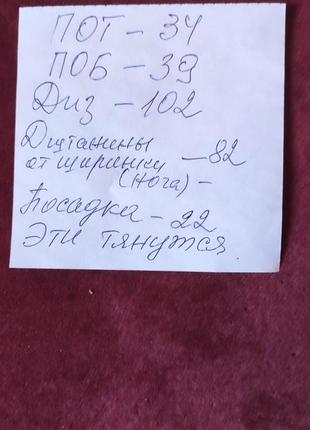 ПОТ – 34
ПОБ – 39
Диз – 102
Д штанины
от ширинки – 82
(нога) –
Посадка – 22
Эти тянутся.